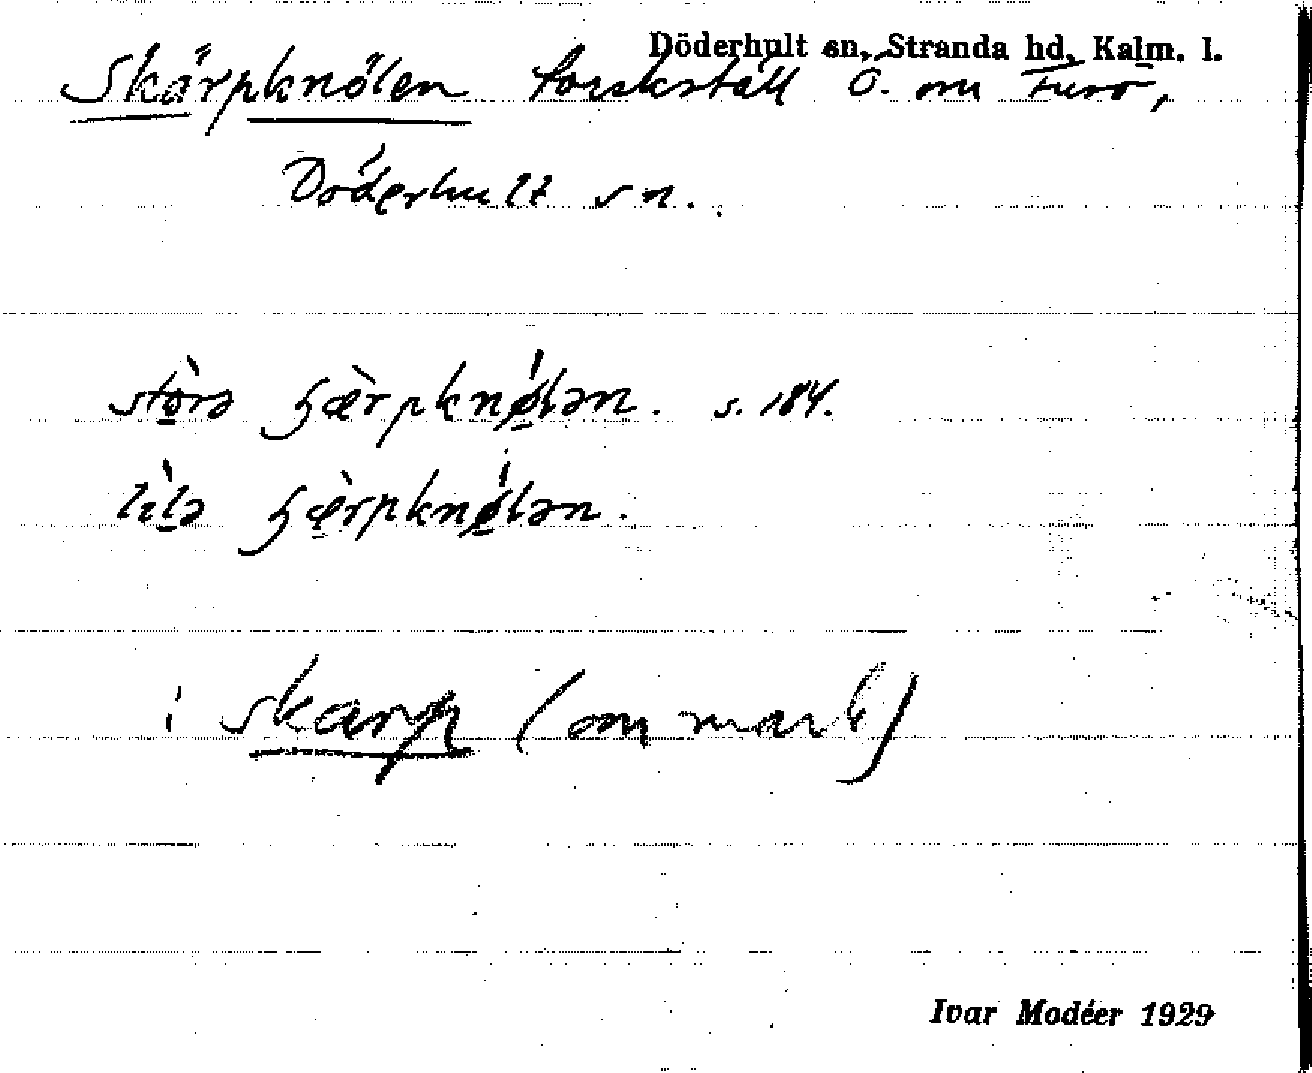 Döderhult sn, Stranda hd, Kalm. l.
Skärpknölen torskställ Ö. om Furö,
Döderhult sn.
stòrə ʂæ̀rpknǿlən. s. 184.
lìlə ʂæ̀rpknǿlən.
: skarp (om mark)
Ivar Modéer 1929